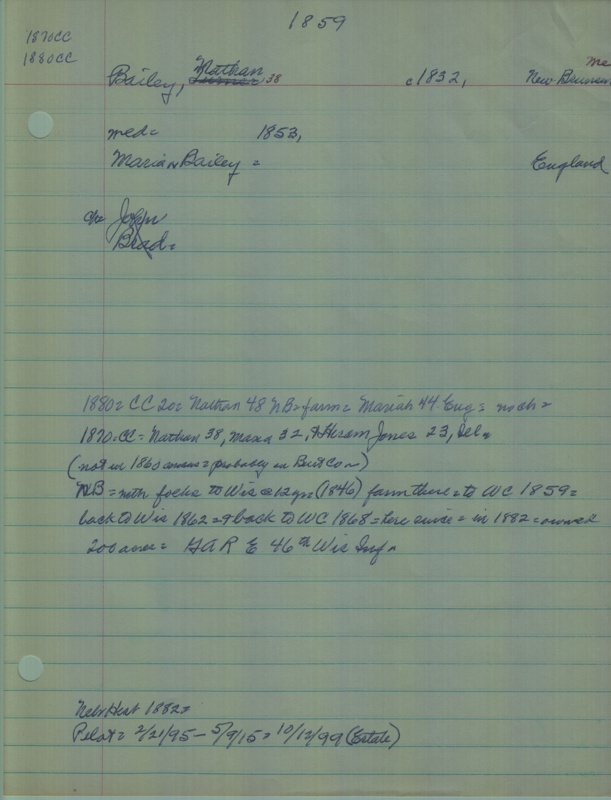 1859
1870CC
1880CC
Bailey, Nathan 38 c1832, New Brunsw
me
med= 1853,
Marian Bailey = England
ch= John
Brad=
1880= CC 20= Nathan 48 NB= farm= Mariah 44 Eng= noch=
1870=CC= Nathan 38, Maria 32, + Hiram Jones 23, Ill=
(not in 1860 census= probably in Burt Co=)
NB= with folks to Wis @12yrs (1846) farm there= to WC 1859=
back to Wis 1862= & back to WC 1868= here since= in 1882= owned
200 acres= GAR E 46th Wis Inf=
Nebr Hist 1882=
Pilot= 2/21/95- 5/9/15= 10/12/99 (Estate)